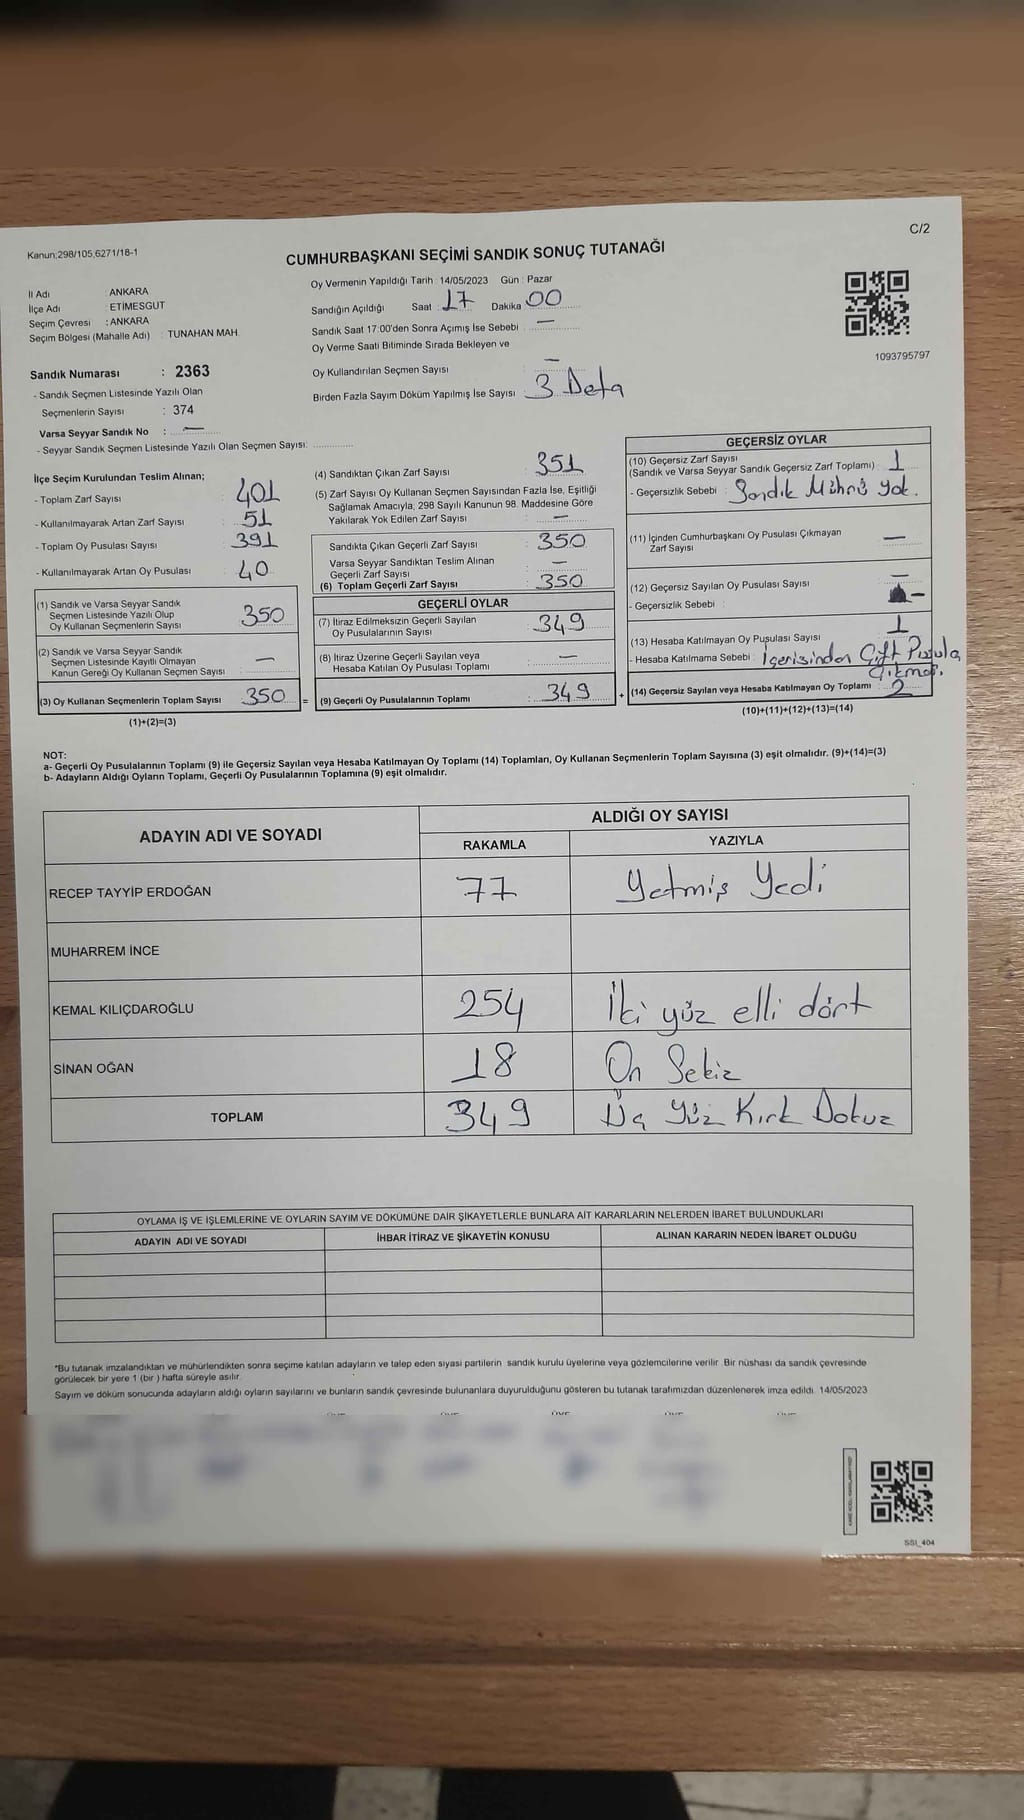 C/2
Kanun;298/105,6271/18-1
CUMHURBAŞKANI SEÇİMİ SANDIK SONUÇ TUTANAĞI
İl Adı : ANKARA
İlçe Adı : ETİMESGUT
Seçim Çevresi : ANKARA
Seçim Bölgesi (Mahalle Adı) : TUNAHAN MAH.
Sandık Numarası : 2363
- Sandık Seçmen Listesinde Yazılı Olan
Seçmenlerin Sayısı : 374
Varsa Seyyar Sandık No : —
- Seyyar Sandık Seçmen Listesinde Yazılı Olan Seçmen Sayısı:
Oy Vermenin Yapıldığı Tarih : 14/05/2023 Gün : Pazar
Sandığın Açıldığı Saat : 17 Dakika : 00
Sandık Saat 17:00'den Sonra Açımış İse Sebebi : —
Oy Verme Saati Bitiminde Sırada Bekleyen ve
Oy Kullandırılan Seçmen Sayısı : —
Birden Fazla Sayım Döküm Yapılmış İse Sayısı : 3 Defa
1093795797
İlçe Seçim Kurulundan Teslim Alınan;
- Toplam Zarf Sayısı : 401
- Kullanılmayarak Artan Zarf Sayısı : 51
- Toplam Oy Pusulası Sayısı : 391
- Kullanılmayarak Artan Oy Pusulası : 40
(1) Sandık ve Varsa Seyyar Sandık
Seçmen Listesinde Yazılı Olup
Oy Kullanan Seçmenlerin Sayısı : 350
(2) Sandık ve Varsa Seyyar Sandık
Seçmen Listesinde Kayıtlı Olmayan
Kanun Gereği Oy Kullanan Seçmen Sayısı : —
(3) Oy Kullanan Seçmenlerin Toplam Sayısı 350 =
(1)+(2)=(3)
(4) Sandıktan Çıkan Zarf Sayısı : 351
(5) Zarf Sayısı Oy Kullanan Seçmen Sayısından Fazla İse, Eşitliği
Sağlamak Amacıyla, 298 Sayılı Kanunun 98. Maddesine Göre
Yakılarak Yok Edilen Zarf Sayısı : —
Sandıkta Çıkan Geçerli Zarf Sayısı : 350
Varsa Seyyar Sandıktan Teslim Alınan
Geçerli Zarf Sayısı : —
(6) Toplam Geçerli Zarf Sayısı : 350
GEÇERLİ OYLAR
(7) İtiraz Edilmeksizin Geçerli Sayılan
Oy Pusulalarının Sayısı : 349
(8) İtiraz Üzerine Geçerli Sayılan veya
Hesaba Katılan Oy Pusulası Toplamı : —
(9) Geçerli Oy Pusulalarının Toplamı : 349 +
GEÇERSİZ OYLAR
(10) Geçersiz Zarf Sayısı
(Sandık ve Varsa Seyyar Sandık Geçersiz Zarf Toplamı) : 1
- Geçersizlik Sebebi : Sandık Mührü Yok.
(11) İçinden Cumhurbaşkanı Oy Pusulası Çıkmayan
Zarf Sayısı : —
(12) Geçersiz Sayılan Oy Pusulası Sayısı : —
- Geçersizlik Sebebi : —
(13) Hesaba Katılmayan Oy Pusulası Sayısı : 1
- Hesaba Katılmama Sebebi : İçerisinden Çift Pusula
Çıkması.
(14) Geçersiz Sayılan veya Hesaba Katılmayan Oy Toplamı : 2
(10)+(11)+(12)+(13)=(14)
NOT:
a- Geçerli Oy Pusulalarının Toplamı (9) ile Geçersiz Sayılan veya Hesaba Katılmayan Oy Toplamı (14) Toplamları, Oy Kullanan Seçmenlerin Toplam Sayısına (3) eşit olmalıdır. (9)+(14)=(3)
b- Adayların Aldığı Oyların Toplamı, Geçerli Oy Pusulalarının Toplamına (9) eşit olmalıdır.
ADAYIN ADI VE SOYADI
ALDIĞI OY SAYISI
RAKAMLA YAZIYLA
RECEP TAYYİP ERDOĞAN 77 Yetmiş Yedi
MUHARREM İNCE
KEMAL KILIÇDAROĞLU 254 İki yüz elli dört
SİNAN OĞAN 18 On Sekiz
TOPLAM 349 Üç Yüz Kırk Dokuz
OYLAMA İŞ VE İŞLEMLERİNE VE OYLARIN SAYIM VE DÖKÜMÜNE DAİR ŞİKAYETLERLE BUNLARA AİT KARARLARIN NELERDEN İBARET BULUNDUKLARI
ADAYIN ADI VE SOYADI İHBAR İTİRAZ VE ŞİKAYETİN KONUSU ALINAN KARARIN NEDEN İBARET OLDUĞU
*Bu tutanak imzalandıktan ve mühürlendikten sonra seçime katılan adayların ve talep eden siyasi partilerin sandık kurulu üyelerine veya gözlemcilerine verilir. Bir nüshası da sandık çevresinde
görülecek bir yere 1 (bir ) hafta süreyle asılır.
Sayım ve döküm sonucunda adayların aldığı oyların sayılarını ve bunların sandık çevresinde bulunanlara duyurulduğunu gösteren bu tutanak tarafımızdan düzenlenerek imza edildi. 14/05/2023
SSI_404